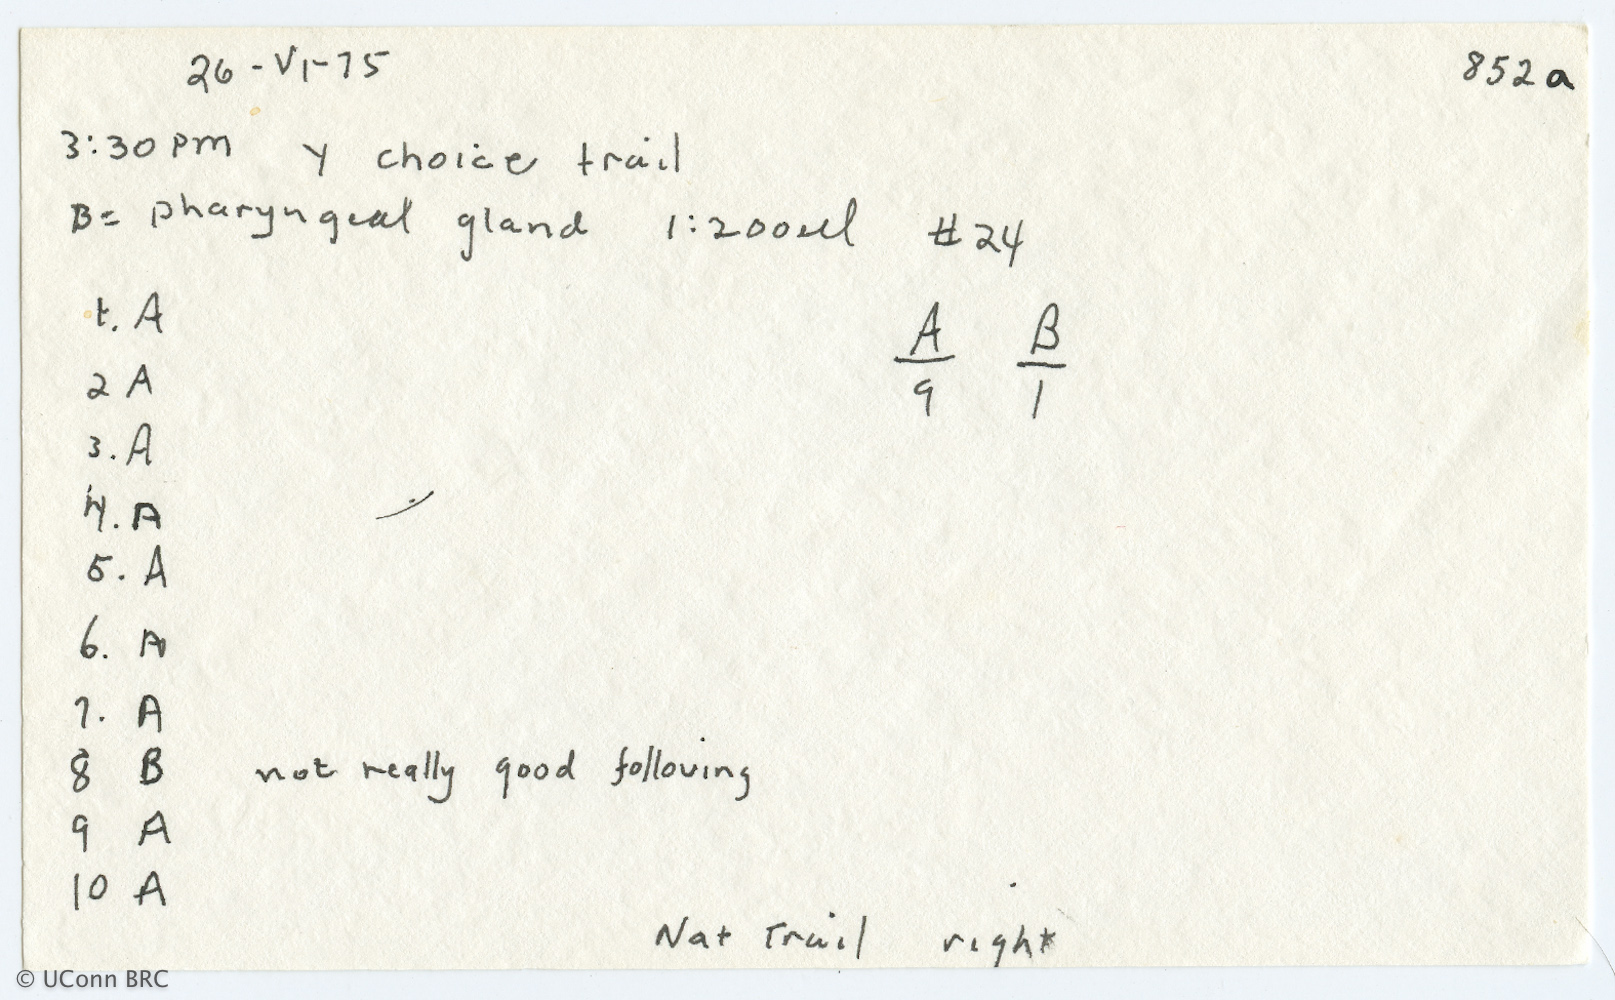 26-VI-75 852a
3:30 pm Y choice trail
B= pharyngeal gland 1:200ul #24
1. A
A B
2 A
9 1
3. A
4. A
5. A
6. A
7. A
8 B not really good following
9 A
10 A
Nat Trail right
© UConn BRC